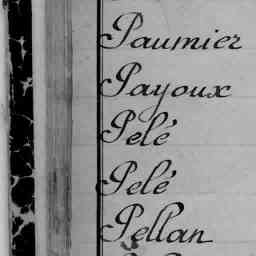 Paumier
Payoux
Pelé
Pelé
Pellan